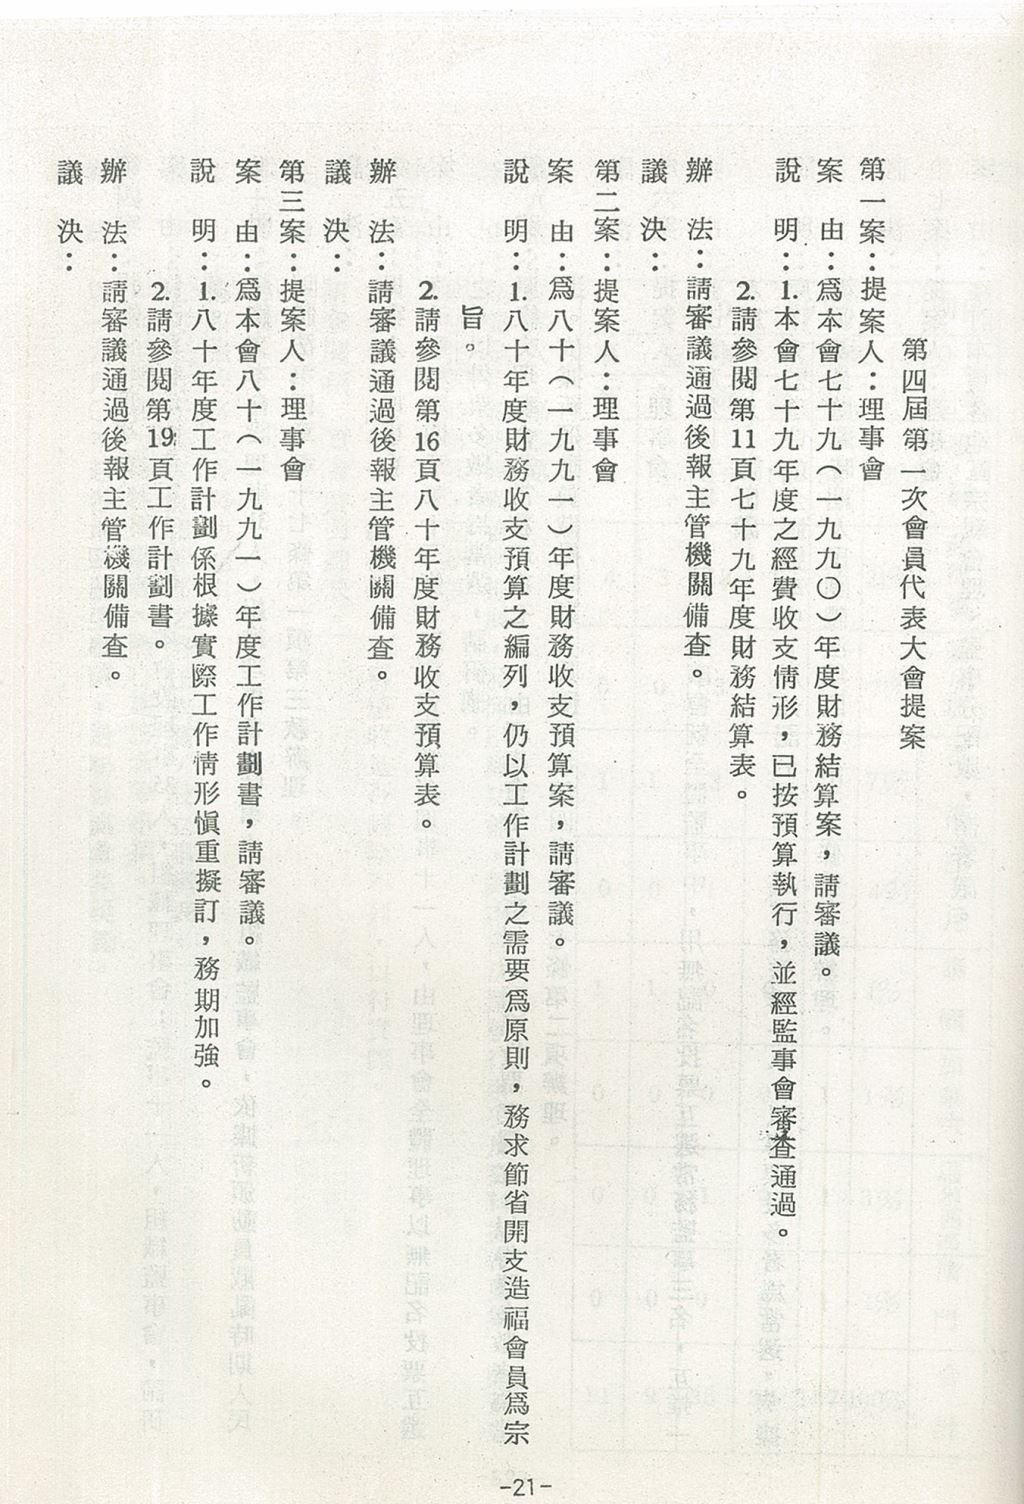 第四屆第一次會員代表大會提案
第一案：提案人：理事會
案　由：爲本會七十九（一九九〇）年度財務結算案，請審議。
說　明：1.本會七十九年度之經費收支情形，已按預算執行，並經監事會審查通過。
2.請參閱第11頁七十九年度財務結算表。
辦　法：請審議通過後報主管機關備查。
議　決：
第二案：提案人：理事會
案　由：爲八十（一九九一）年度財務收支預算案，請審議。
說　明：1.八十年度財務收支預算之編列，仍以工作計劃之需要爲原則，務求節省開支造福會員爲宗
旨。
2.請參閱第16頁八十年度財務收支預算表。
辦　法：請審議通過後報主管機關備查。
議　決：
第三案：提案人：理事會
案　由：爲本會八十（一九九一）年度工作計劃書，請審議。
說　明：1.八十年度工作計劃係根據實際工作情形愼重擬訂，務期加強。
2.請參閱第19頁工作計劃書。
辦　法：請審議通過後報主管機關備查。
議　決：
-21-